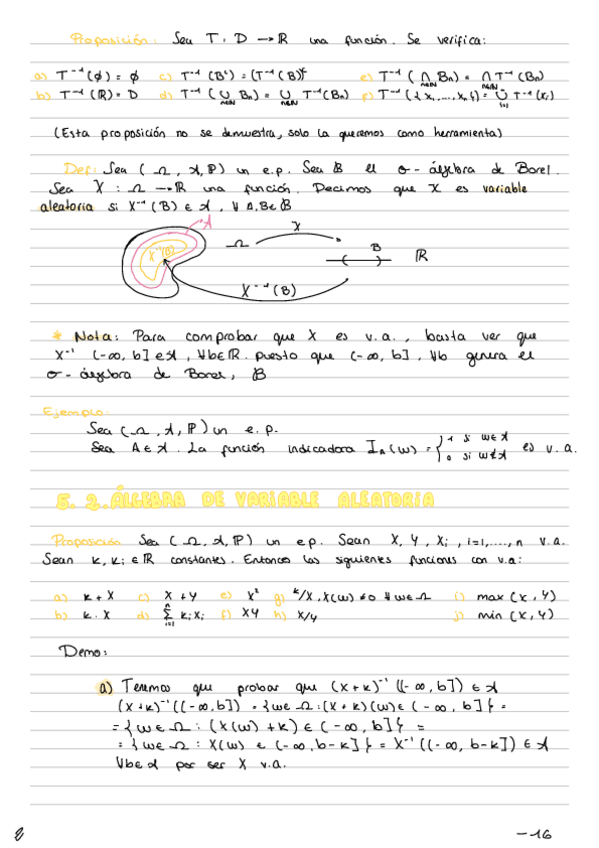 Proposición: Sea T: D → ℝ una función. Se verifica:
a) T⁻¹(∅) = ∅ c) T⁻¹(Bᶜ) = (T⁻¹(B))ᶜ e) T⁻¹(⋂ₙ∈ℕ Bₙ) = ⋂ₙ∈ℕ T⁻¹(Bₙ)
b) T⁻¹(ℝ) = D d) T⁻¹(⋃ₙ∈ℕ Bₙ) = ⋃ₙ∈ℕ T⁻¹(Bₙ) f) T⁻¹({x₁, ..., xₙ}) = ⋃ᵢ₌₁ T⁻¹(xᵢ)
(Esta proposición no se demuestra, solo la queremos como herramienta)
Def: Sea (Ω, 𝒜, ℙ) un e.p. Sea ℬ el σ-álgebra de Borel.
Sea X: Ω → ℝ una función. Decimos que X es variable
aleatoria si X⁻¹(B) ∈ 𝒜, ∀ B ∈ ℬ
𝒜
X⁻¹(B) Ω X B ℝ
X⁻¹(B)
* Nota: Para comprobar que X es v.a., basta ver que
X⁻¹(-∞, b] ∈ 𝒜, ∀b∈ℝ. puesto que (-∞, b], ∀b genera el
σ-álgebra de Borel, ℬ
Ejemplo:
Sea (Ω, 𝒜, ℙ) un e.p.
Sea A ∈ 𝒜. La función indicadora I_A(ω) = { 1 si ω∈𝒜 es v.a.
0 si ω∉𝒜
5. 2. ÁLGEBRA DE VARIABLE ALEATORIA
Proposición Sea (Ω, 𝒜, ℙ) un e.p. Sean X, Y, Xᵢ, i=1,...., n v.a.
Sean k, kᵢ ∈ ℝ constantes. Entonces las siguientes funciones con v.a:
a) k + X c) X + Y e) X² g) k/X, X(ω) ≠ 0 ∀ω∈Ω i) max (X, Y)
b) k · X d) Σⁿᵢ₌₁ kᵢXᵢ f) XY h) X/Y j) min (X, Y)
Demo:
a) Tenemos que probar que (X+k)⁻¹((-∞, b]) ∈ 𝒜
(X+k)⁻¹((-∞, b]) = {ω∈Ω : (X+k)(ω) ∈ (-∞, b]} =
= {ω∈Ω : (X(ω) + k) ∈ (-∞, b]} =
= {ω∈Ω : X(ω) ∈ (-∞, b-k]} = X⁻¹((-∞, b-k]) ∈ 𝒜
∀b∈𝒜 por ser X v.a.
-16